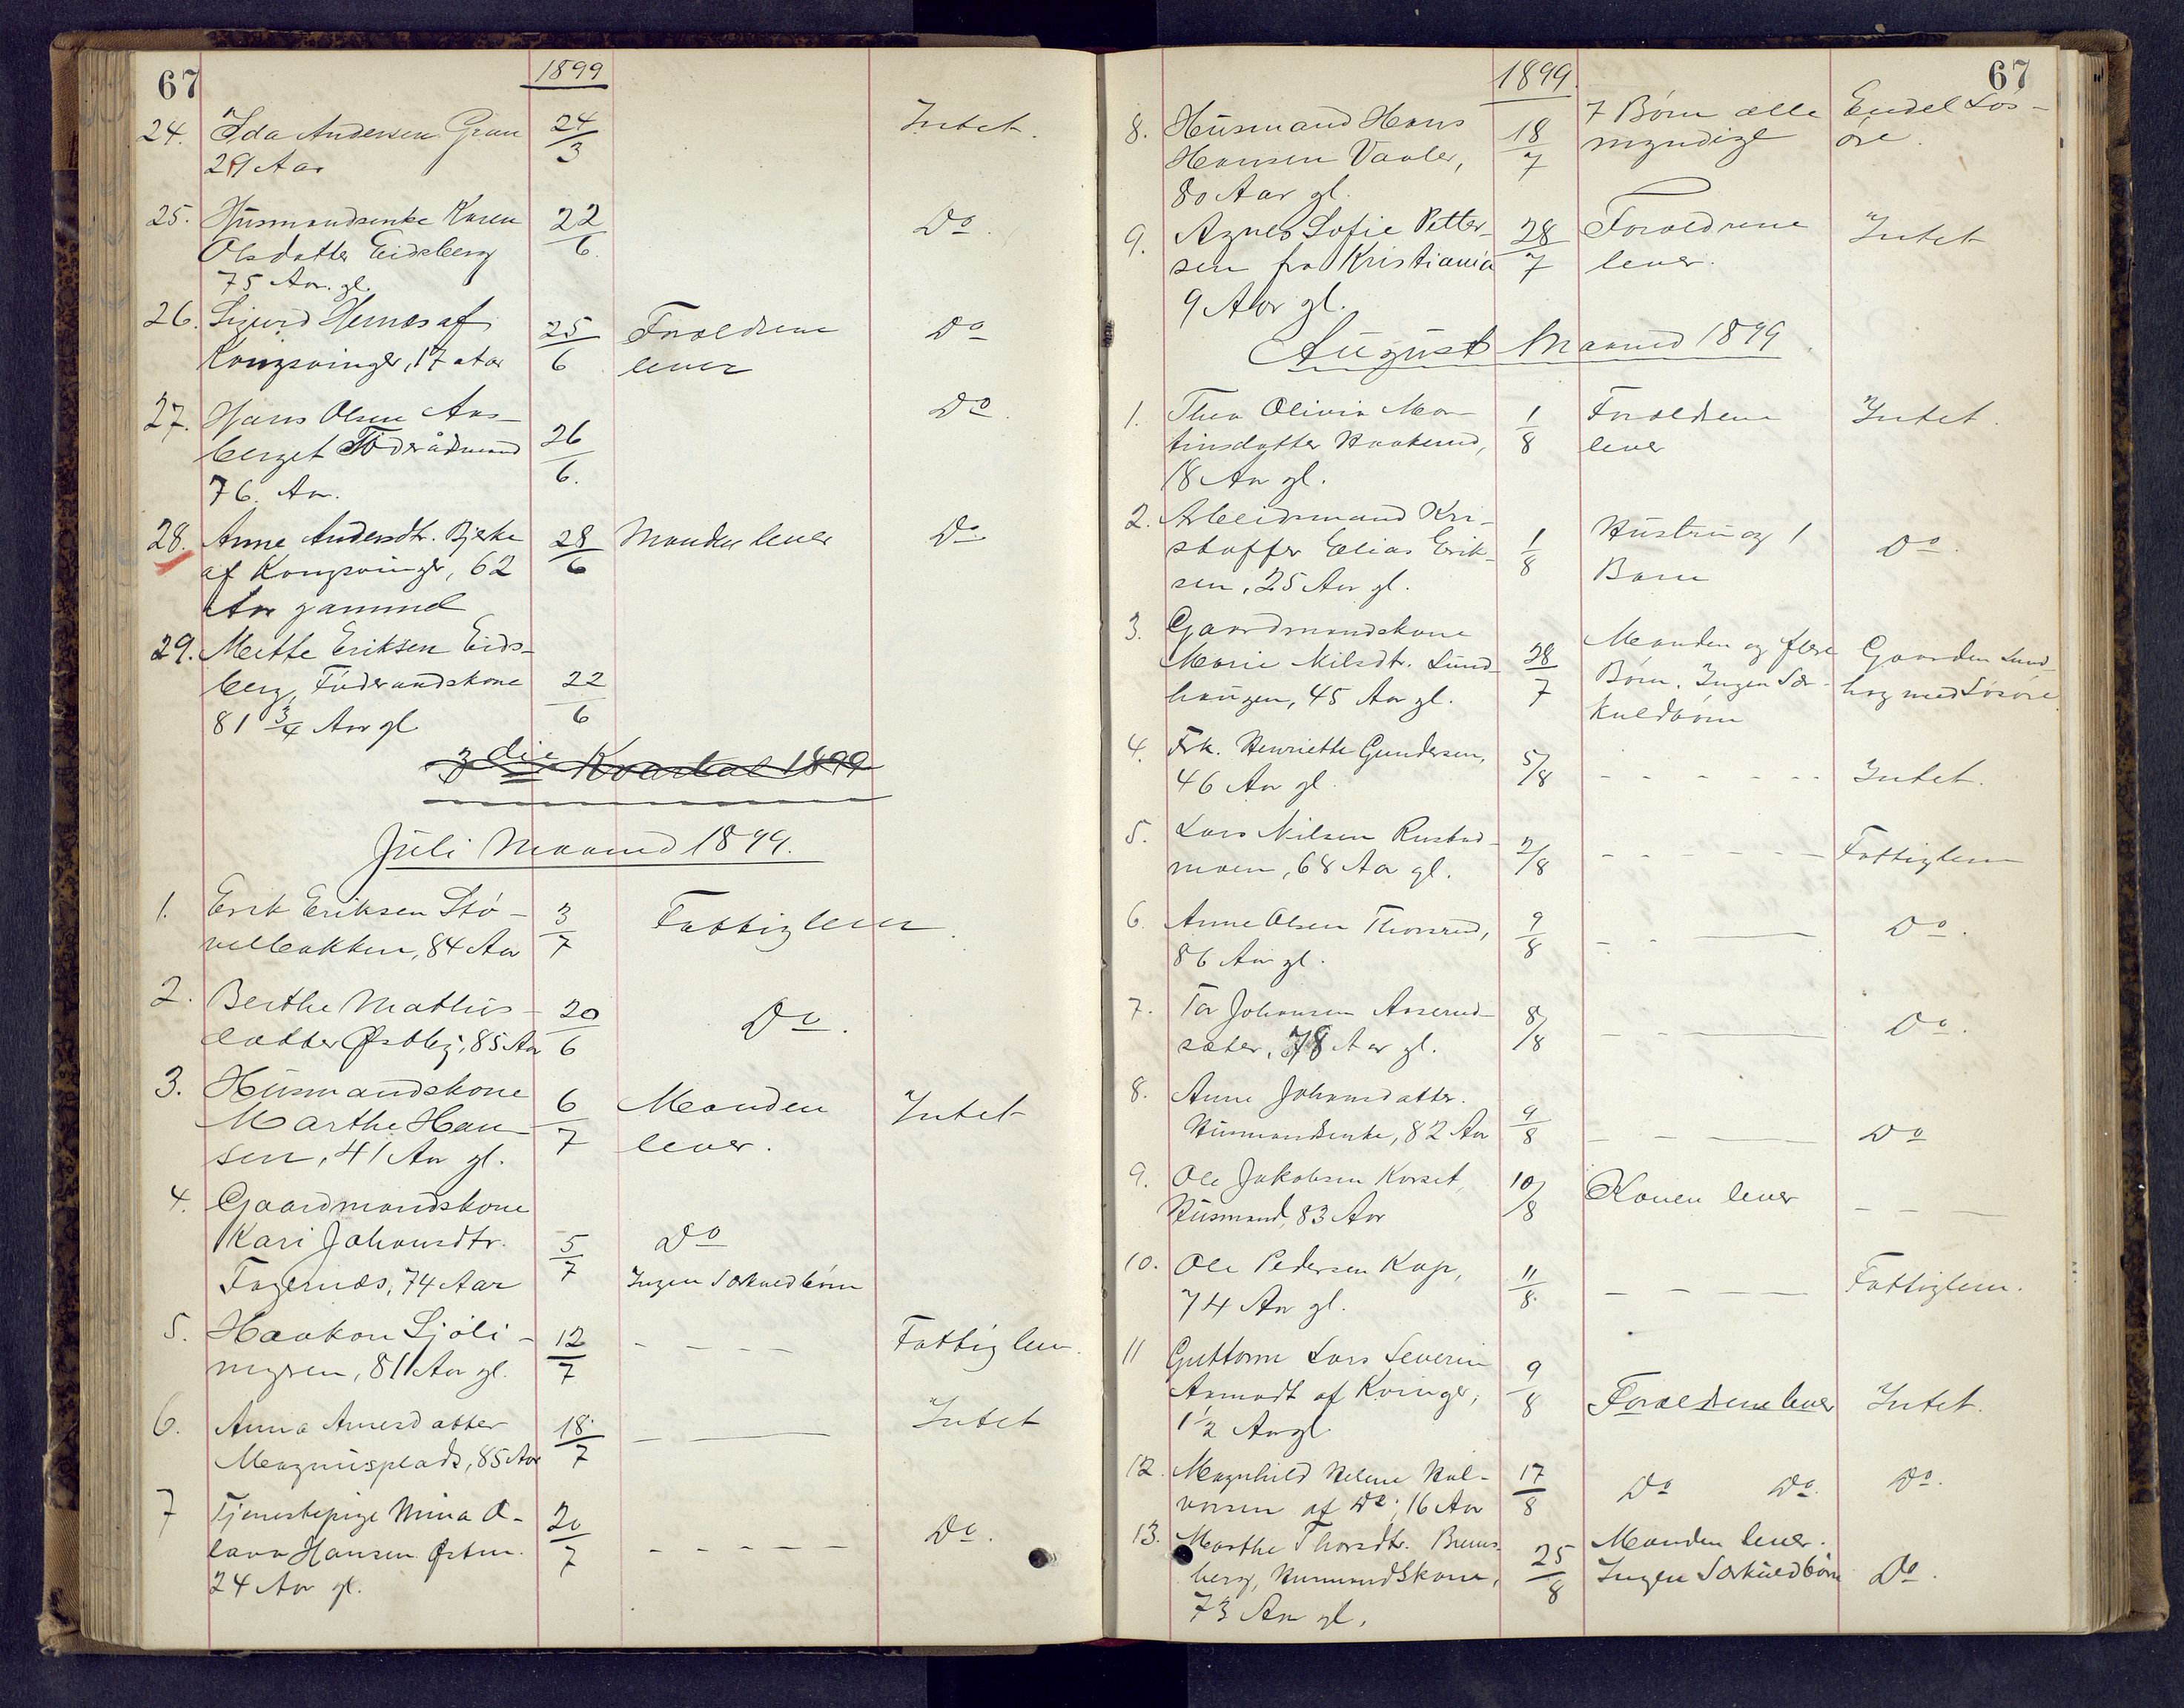 67
1899
24. Ida Andersen Gran 24/3 Intet.
29 Aar
25. Husmandsenke Karen 22/6. Do.
Olsdatter Eidsberg
75 Aar. gl.
26. Sigurd Hernæs af 25/6 Forældrene Do
Kongsvinger, 17 Aar lever
27. Hans Olsen Aas- 26/6. Do.
berget Föderådmand
76. Aar.
28. Anne Andersdtr. Bjerke 28/6 Manden lever Do
af Kongsvinger, 62
Aar gammel
29. Mette Eriksen Eids-
berg, Föderaadskone 22/6
81 3/4 Aar gl
3die Kvartal 1899
Juli Maaned 1899.
1. Erik Eriksen Stö- 3/7 Fattiglem.
velbakken, 84 Aar
2. Berthe Mathis- 20/6 Do.
datter Østby, 85 Aar
3. Husmandskone
Marthe Han- 6/7 Manden Intet
sen, 41 Aar gl. lever.
4. Gaardmandskone
Kari Johansdtr. 5/7 Do
Fagernæs, 74 Aar Ingen Særkuldbörn
5. Haakon Sjöli- 12/7 - - - - Fattiglem.
myren, 81 Aar gl.
6. Anna Arnesdatter 18/7 - — Intet
Magnusplads, 85 Aar
7 Tjenestepige Mina O- 20/7 - - - - - Do.
lava Hansen Østm.
24 Aar gl.
67
1899.
8. Husmand Hans 18/7 7 Børn alle Endel Løs-
Hansen Vaaler, myndige öre.
80 Aar gl.
9. Agnes Sofie Petter- 28/7 Forældrene Intet
sen fra Kristiania lever.
9 Aar gl.
August Maaned 1899.
1. Thea Olivia Mar- 1/8 Forældrene Intet.
tinsdatter Haakerud, lever
18 Aar gl.
2. Arbeidsmand Kri-
stoffer Elias Erik- 1/8 Hustru og 1 Do.
sen, 25 Aar gl. Barn
3. Gaardmandskone
Marie Nilsdtr. Lund- 28/7 Manden og flere Gaarden Lund-
haugen, 45 Aar gl. Børn. Ingen Sær- haug med Lösöre
kuldbørn
4. Frk. Henriette Gundersen, 5/8 - - - - - - Intet.
46 Aar gl.
5. Lars Nilsen Rustad- 2/8 - - - - - - Fattiglem
moen, 68 Aar gl.
6. Anne Olsen Thorsrud, 9/8 - - — Do.
86 Aar gl.
7. Tor Johansen Aaserud- 8/8 - - — Do.
sæter, 78 Aar gl.
8. Anne Johansdatter.
Husmandsenke, 82 Aar 9/8 - - — Do
9. Ole Jakobsen Korset, 10/8 Konen lever - - —
Husmand, 83 Aar
10. Ole Pedersen Kap, 11/8. - - — Fattiglem.
74 Aar gl.
11 Guttorm Lars Severin 9/8
Aamodt af Kvinger, Forældrene lever Intet.
1 1/2 Aar gl.
12. Magnhild Helene Hal- 17/8 Do Do. Do.
vorsen af Do, 16 Aar
13. Marthe Thorsdtr. Bruns- 25/8 Manden lever.
berg, Husmandskone, Ingen Særkuldbörn Do.
73 Aar gl.